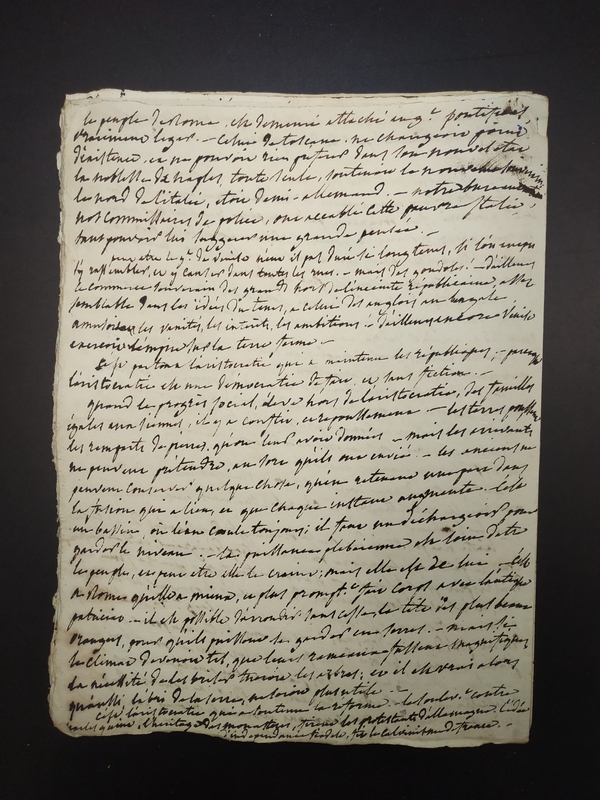 le peuple de Rome est demeuré attaché au g.t pontifical,
vraiment leger. – Celui de toscane ne changeoit point
d'existence, et ne pouvoit rien préférer dans son nouvel etat
la noblesse de naples, toute seule, soutenoit le nouveau
le nord de l'italie, etoit demi-allemand. – notre bureau
nos commissaires de police, ont accablé cette pauvre italie,
sans pouvoir lui suggerer une grande pensée. –
peut etre le g.t de Venise n'eut il pas duré si longtems, si l'on eut pu
s'y rassembler, et y causer dans toutes les rues. – mais des gondoles! – d'ailleurs
le commerce souverain des grands hors de l'enceinte republicaine, assez
semblable dans les idées du tems, a celui des anglois au bengale,
amusoit les vanités, les interets, les ambitions. – d'ailleurs encore Venise
exercoit l'empire sur la terre ferme. –
Ce fut partout l'aristocratie qui a maintenu les républiques; – parceque
l'aristocratie est une démocratie de fait, et sans fiction. –
quand le progrès social, eleve hors de l'aristocratie, des familles
égales aux siennes, il y a conflit, et repoussement – les terres poussent
les remparts de pierres, qu'on leur avoit données – mais les arrivants
ne peuvent prétendre, au sort qu'ils ont envié – les anciens ne
peuvent conserver quelque chose, qu'en retenant une part dans
la fusion qui a lieu, et que chaque instant augmente. C'est
un bassin, où l'eau coule toujours; il faut un déchargeoir pour
garder le niveau. – la puissance plebeienne est loin d'etre
le peuple, et peut etre elle le craint; mais elle est de lui – C'est
a Rome qu'elle a mieux, et plus prompt.t fait corps avec l'antique
patricien – il est possible d'arrondir sans cesse la tête des plus beaux
orangers, pour qu'ils puissent se garder en serres. – mais si
le climat devenoit tel, que leurs rameaux fussent magnifiques
la nécessité de les brider tueroit les arbres; et il est vrai alors
qu'aussi, l'abri de la serre, ne seroit plus utile. –
C'est l'aristocratie qui a soutenu la reforme – le soulev.t contre
l'héritage des monasteres, les protestants d'allemagne. L'idée
d'independance feodale, fit le Calvinisme de france. –